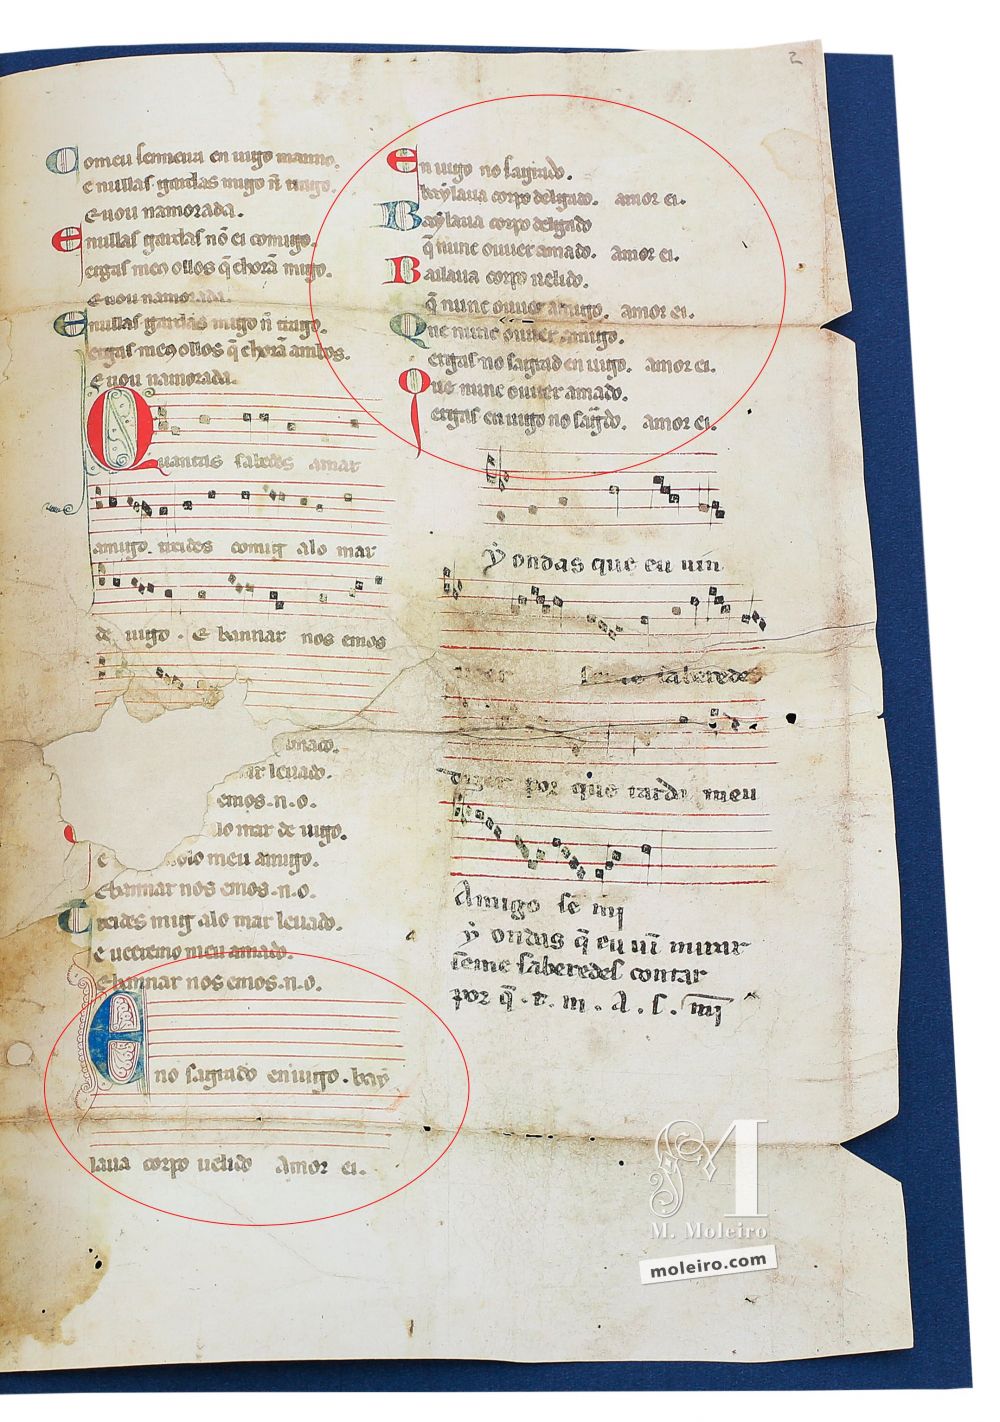 Comeu senneira en uigo manno.
e nullas gardas migo nō trago.
E uou namorada.
E nullas gardas nō ei comigo.
ergas meꝯ ollos q̄ chorā migo.
E uou namorada.
E nullas gardas migo nō trago.
ergas meꝯ ollos q̄ chorā ambos.
E uou namorada.
Quantas sabedes amar
amigo. treides comig alo mar
de uigo. E bannar nos emos
leuado.
emos.n.o.
lo mar de uigo.
e meu amigo.
E bannar nos emos.n.o.
Treides mig alo mar leuado.
e ueeremo meu amado.
E bannar nos emos.n.o.
E no sagrado en uigo. baẏ
laua corpo uelido Amor ei.
2
En uigo no sagrado.
baẏlaua corpo delgado. amor ei.
Baẏlaua corpo delgado
q̄ nunc ouuer amado. amor ei.
Bailaua corpo uelido.
q̄ nunc ouuer amigo. amor ei.
Que nunc ouuer amigo.
ergas no sagrad en uigo. amor ei.
Que nunc ouuer amado.
ergas en uigo no sag̃do. amor ei.
ẏ ondas que eu uin
ueer saberedes
dizer por que tarda meu
Amigo se mī
ẏ ondas q̄ eu uī mirar
seme saberedes contar
por q̄. t. m. A. s. mī
M
M. Moleiro
moleiro.com